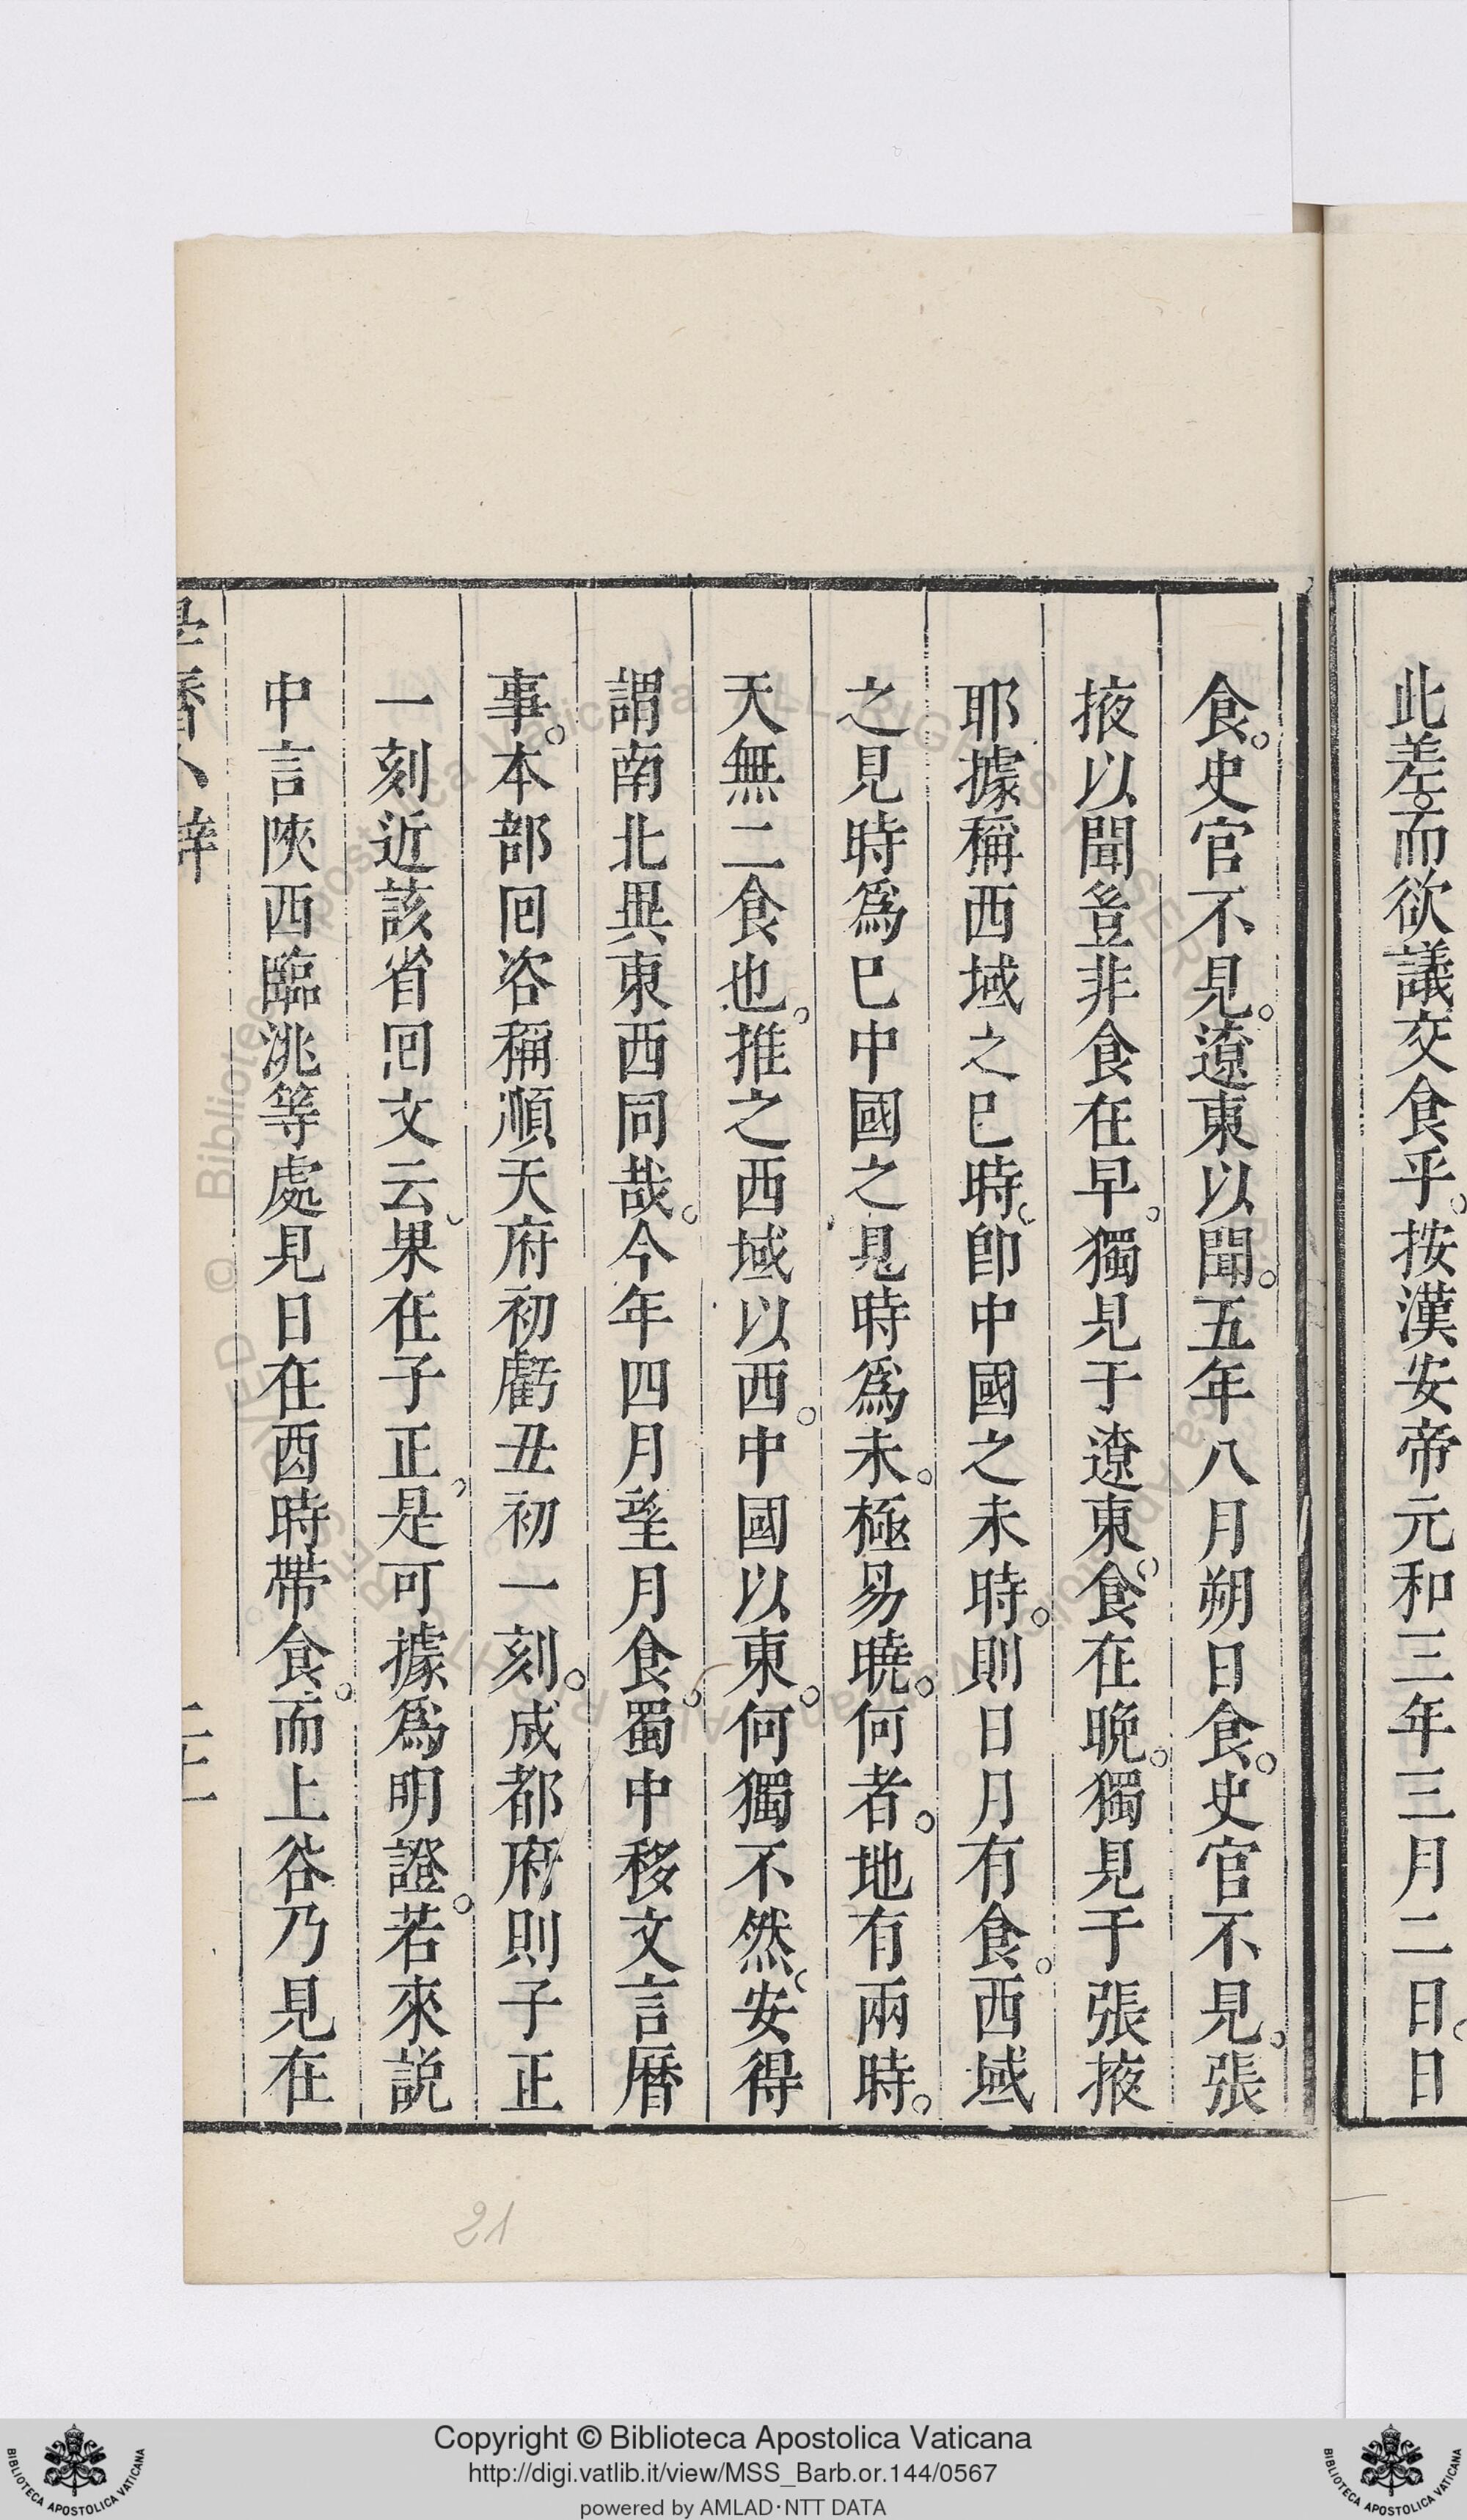 此差。而欲議交食乎。按漢安帝元和三年三月二日。日
食。史官不見。遼東以聞。五年八月朔日食。史官不見。張
掖以聞豈非食在早。獨見于遼東。食在晚。獨見于張掖
耶據稱西域之巳時。卽中國之未時。則日月有食。西域
之見時爲巳中國之見時爲未。極易曉。何者。地有兩時。
天無二食也。推之西域以西。中國以東。何獨不然。安得
謂南北異東西同哉。今年四月望月食。蜀中移文言曆
事。本部囘咨稱順天府初虧丑初一刻。成都府則子正
一刻近該省囘文云。果在子正。是可據爲明證。若來説
中言陝西臨洮等處見日在酉時帶食。而上谷乃見在
學曆小辯
二十一
21
Copyright © Biblioteca Apostolica Vaticana
http://digi.vatlib.it/view/MSS_Barb.or.144/0567
powered by AMLAD·NTT DATA
BIBLIOTECA APOSTOLICA VATICANA
BIBLIOTECA APOSTOLICA VATICANA